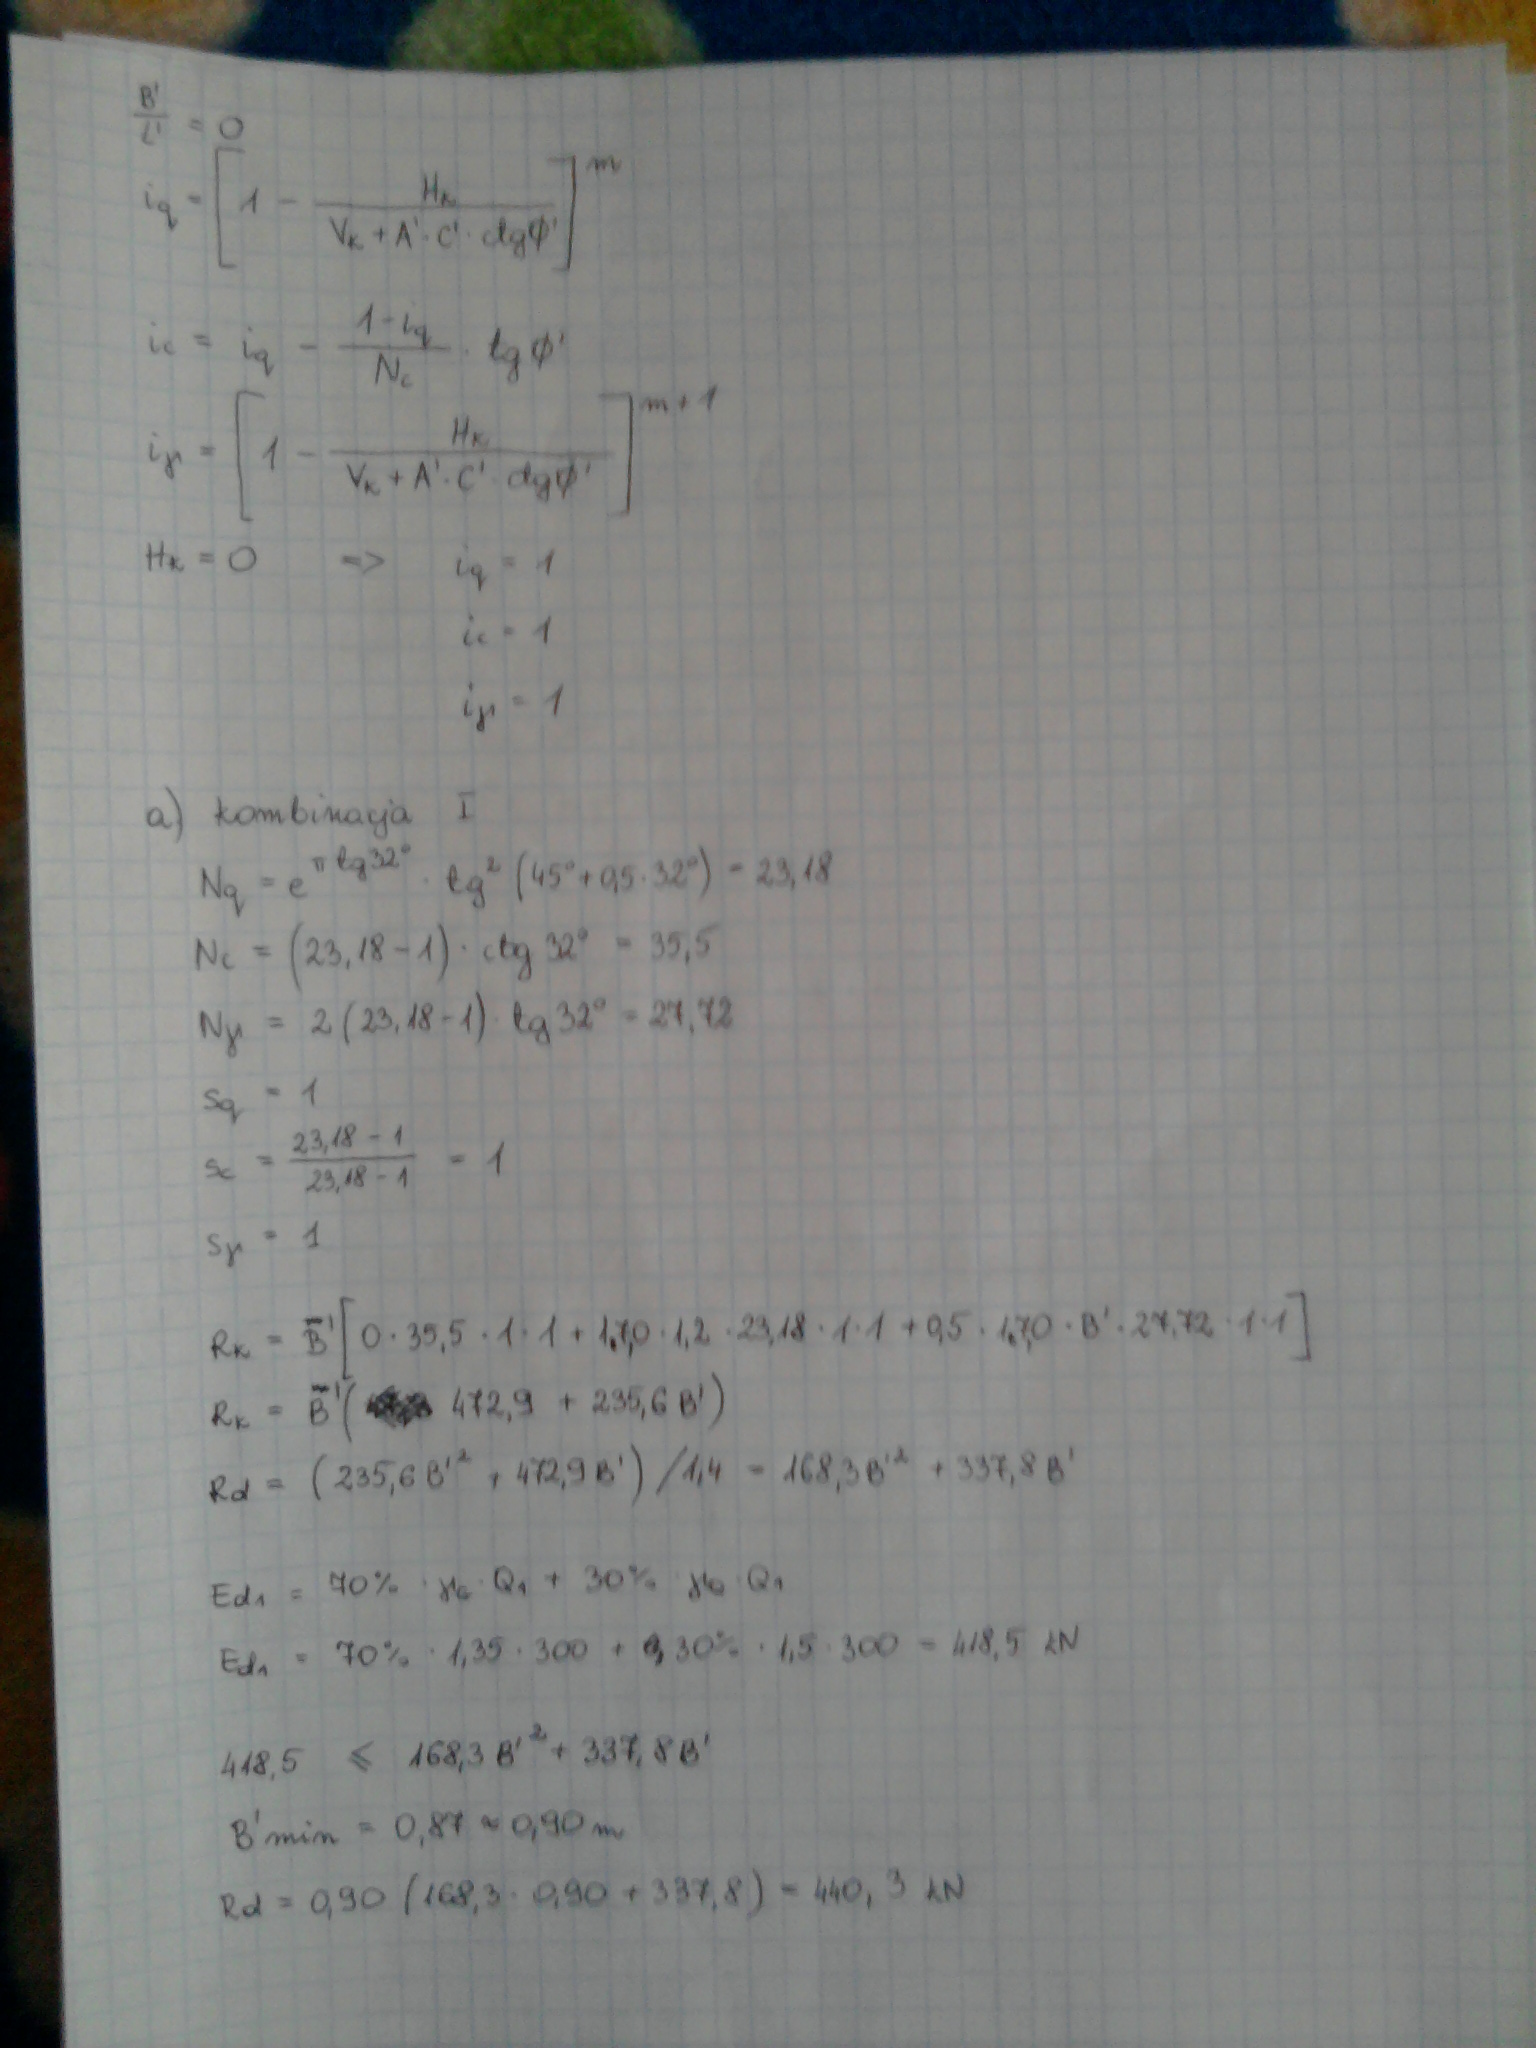 B'/L' = 0
iq = [1 - Hk / (Vk + A' · C' · ctgφ')]^m
ic = iq - (1 - iq)/Nc · tgφ'
iγ = [1 - Hk / (Vk + A' · C' · ctgφ')]^(m+1)
Hk = 0 => iq = 1
ic = 1
iγ = 1
a) kombinacja I
Nq = e^(π tg32°) · tg² (45° + 0,5 · 32°) = 23,18
Nc = (23,18 - 1) · ctg 32° = 35,5
Nγ = 2 (23,18 - 1) · tg 32° = 27,72
sq = 1
sc = (23,18 - 1)/(23,18 - 1) = 1
sγ = 1
Rk = B' [0 · 35,5 · 1 · 1 + 17,0 · 1,2 · 23,18 · 1 · 1 + 0,5 · 17,0 · B' · 27,72 · 1 · 1]
Rk = B' ( 472,9 + 235,6 B')
Rd = (235,6 B'² + 472,9 B') / 1,4 = 168,3 B'² + 337,8 B'
Ed1 = 70% · γG · Q1 + 30% · γQ · Q1
Ed1 = 70% · 1,35 · 300 + 30% · 1,5 · 300 = 418,5 kN
418,5 ⩽ 168,3 B'² + 337,8 B'
B'min = 0,87 ≈ 0,90 m
Rd = 0,90 (168,3 · 0,90 + 337,8) = 440,3 kN